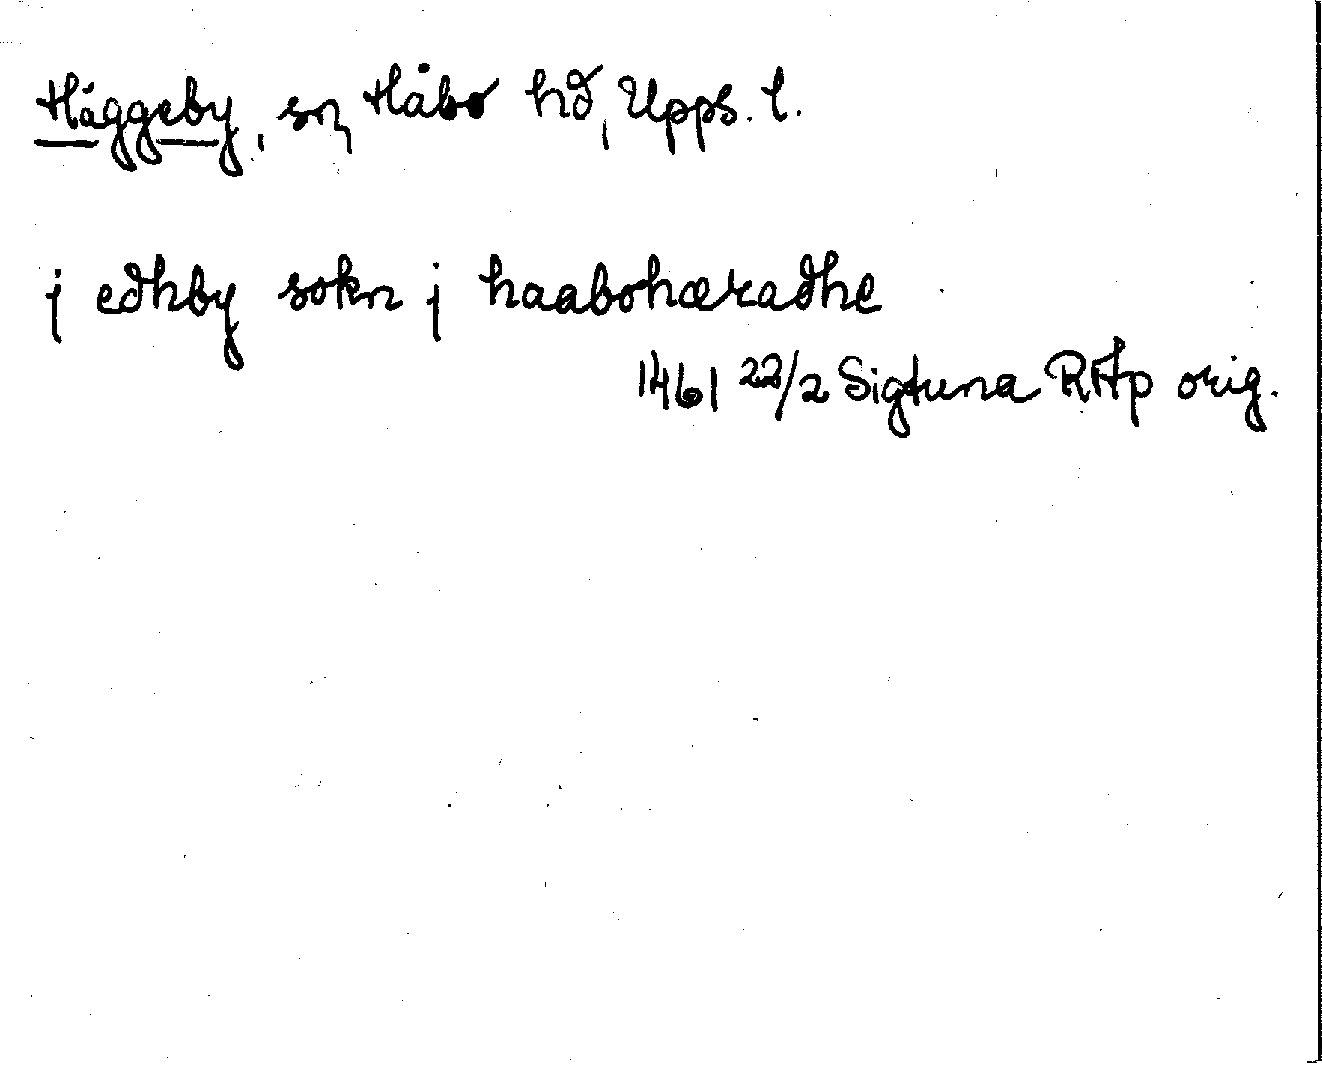 Häggeby, sn, Håbo hd, Upps. l.
j edhby sokn j haabohæradhe
1461 22/2 Sigtuna RAp orig.